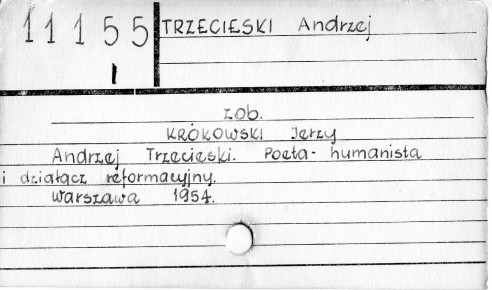 11155
TRZECIESKI Andrzej
I
zob.
KRÓKOWSKI Jerzy
Andrzej Trzecieski. Poeta-humanista
i działacz reformacyjny.
Warszawa 1954.